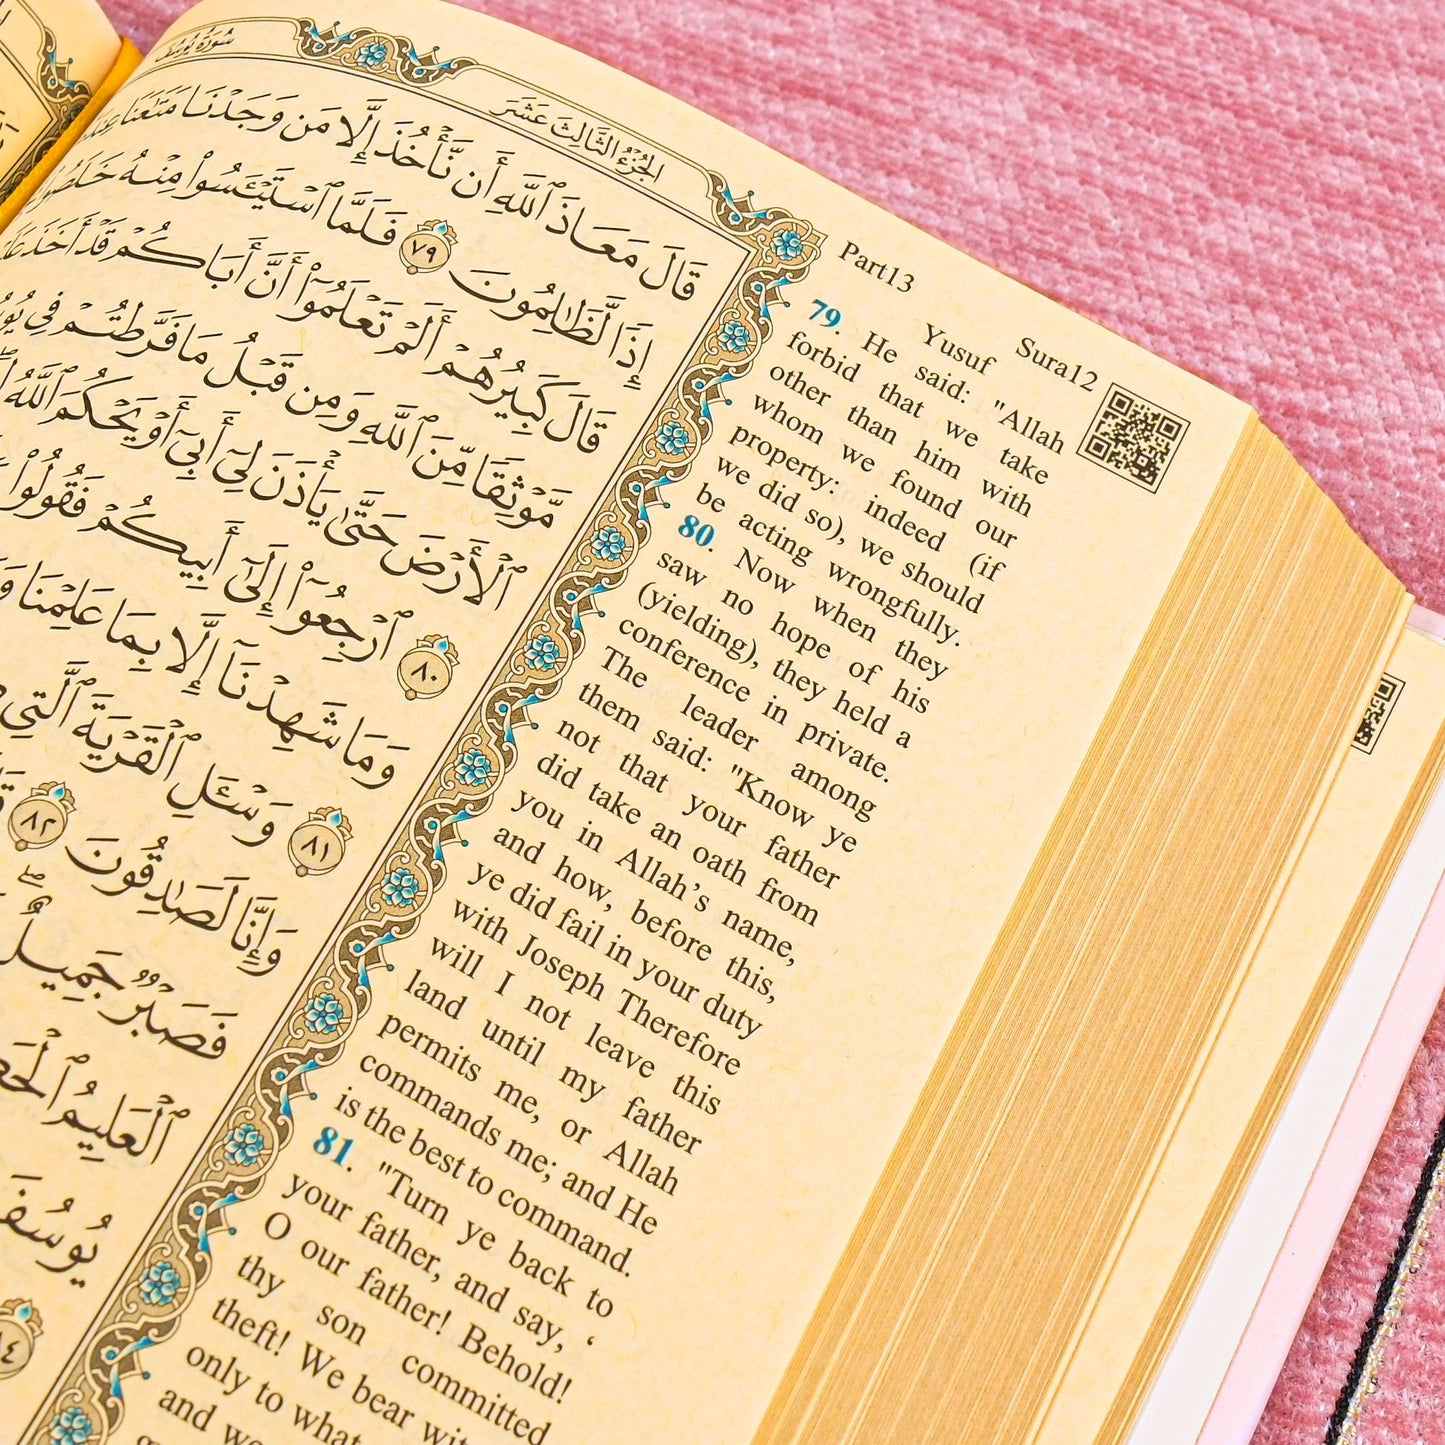 سُورَةُ يُوسُفَ
الجُزْءُ الثَّالِثَ عَشَرَ
قَالَ مَعَاذَ ٱللَّهِ أَن نَّأْخُذَ إِلَّا مَن وَجَدْنَا مَتَٰعَنَا
إِذًا لَّظَٰلِمُونَ ٧٩ فَلَمَّا ٱسْتَيْـَٔسُوا۟ مِنْهُ
قَالَ كَبِيرُهُمْ أَلَمْ تَعْلَمُوٓا۟ أَنَّ أَبَاكُمْ قَدْ أَخَذَ
مَّوْثِقًا مِّنَ ٱللَّهِ وَمِن قَبْلُ مَا فَرَّطتُمْ فِى
ٱلْأَرْضَ حَتَّىٰ يَأْذَنَ لِىٓ أَبِىٓ أَوْ يَحْكُمَ ٱللَّهُ
ٱرْجِعُوٓا۟ إِلَىٰٓ أَبِيكُمْ فَقُولُوا۟ ٨٠
وَمَا شَهِدْنَآ إِلَّا بِمَا عَلِمْنَا
وَسْـَٔلِ ٱلْقَرْيَةَ ٱلَّتِى ٨١
وَإِنَّا لَصَٰدِقُونَ ٨٢
فَصَبْرٌ جَمِيلٌ
ٱلْعَلِيمُ
يُوسُفَ
Part13
Yusuf
Sura12
79. He said: "Allah
forbid that we take
other than him with
whom we found our
property: indeed (if
we did so), we should
be acting wrongfully.
80. Now when they
saw no hope of his
(yielding), they held a
conference in private.
The leader among
them said: "Know ye
not that your father
did take an oath from
you in Allah's name,
and how, before this,
ye did fail in your duty
with Joseph Therefore
will I not leave this
land until my father
permits me, or Allah
commands me; and He
is the best to command.
81. "Turn ye back to
your father, and say, ‘
O our father! Behold!
thy son committed
theft! We bear
only to what
and